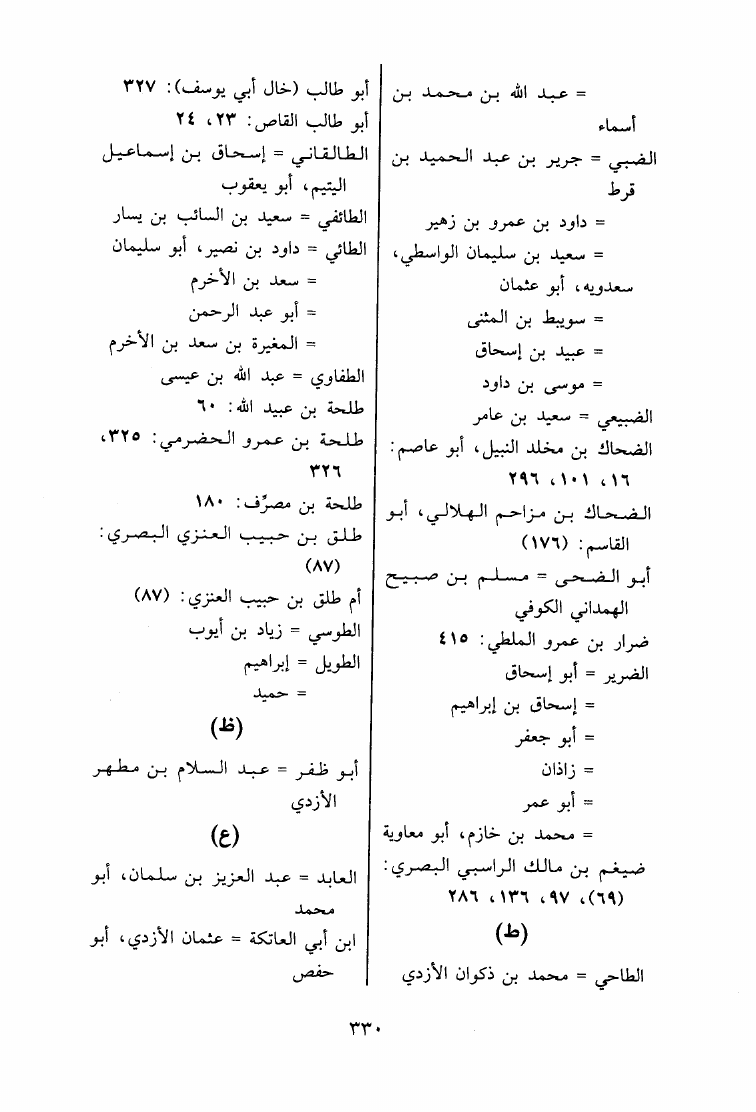 = عبد الله بن محمد بن
أسماء
الضبي = جرير بن عبد الحميد بن
قرط
= داود بن عمرو بن زهير
= سعيد بن سليمان الواسطي،
سعدويه، أبو عثمان
= سويبط بن المثنى
= عبيد بن إسحاق
= موسى بن داود
الضبيعي = سعيد بن عامر
الضحاك بن مخلد النبيل، أبو عاصم:
١٦، ١٠١، ٢٩٦
الضحاك بن مزاحم الهلالي، أبو
القاسم: (١٧٦)
أبو الضحى = مسلم بن صبيح
الهمداني الكوفي
ضرار بن عمرو الملطي: ٤١٥
الضرير = أبو إسحاق
= إسحاق بن إبراهيم
= أبو جعفر
= زاذان
= أبو عمر
= محمد بن خازم، أبو معاوية
ضيغم بن مالك الراسبي البصري:
(٦٩)، ٩٧، ١٣٦، ٢٨٦
(ط)
الطاحي = محمد بن ذكوان الأزدي
أبو طالب (خال أبي يوسف): ٣٢٧
أبو طالب القاص: ٢٣، ٢٤
الطالقاني = إسحاق بن إسماعيل
اليتيم، أبو يعقوب
الطائفي = سعيد بن السائب بن يسار
الطائي = داود بن نصير، أبو سليمان
= سعد بن الأخرم
= أبو عبد الرحمن
= المغيرة بن سعد بن الأخرم
الطفاوي = عبد الله بن عيسى
طلحة بن عبيد الله: ٦٠
طلحة بن عمرو الحضرمي: ٣٢٥،
٣٢٦
طلحة بن مصرِّف: ١٨٠
طلق بن حبيب العنزي البصري:
(٨٧)
أم طلق بن حبيب العنزي: (٨٧)
الطوسي = زياد بن أيوب
الطويل = إبراهيم
= حميد
(ظ)
أبو ظفر = عبد السلام بن مطهر
الأزدي
(ع)
العابد = عبد العزيز بن سلمان، أبو
محمد
ابن أبي العاتكة = عثمان الأزدي، أبو
حفص
٣٣٠